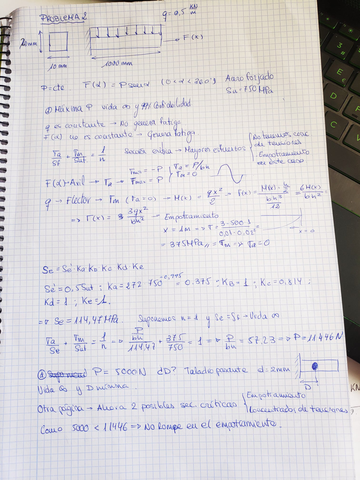 PROBLEMA 2
q = 0,5 KN/m
20mm
10mm
1000 mm
F(α)
P=cte F(α) = P senα (0<α<360°) Acero forjado
Su=750 MPa
① Máxima P vida ∞ y 99% fiabilidad
q es constante → No genera fatiga.
F(α) no es constante → Genera fatiga.
σa/Se + σm/Sut = 1/n
Sección crítica → Mayores esfuerzos
No tenemos conc. de tensiones
Empotramiento en este caso
F(α)-Axil → σa
σmax = P
σmin = -P
σa = P/bh
σm = 0
q → Flector → σm (σa=0) → M(x) = qx²/2 → σ(x) = M(x)·h/2 / bh³/12 = 6M(x)/bh²
⇒ σ(x) = 3qx²/bh² → Empotramiento
x = 1m → σ = 3·500·1/0,01·0,02²
= 375MPa = σm → σa = 0
Se = Se' Ka Kb Kc Kd Ke
Se' = 0,5Sut ; Ka = 272·750^-0,995 = 0.375 ; KB = 1 ; Kc = 0,814 ;
Kd = 1 ; Ke = 1.
⇒ Se = 114,47MPa. Suponemos n=1 y Se=Sf → Vida ∞
σa/Se + σm/Sut = 1/n → P/bh/114,47 + 375/750 = 1 → P/bh = 57,23 → P = 11446N
② P = 5000N ¿D? Taladro pasante d=2mm
Vida ∞ y D mínima
D
Otra página → Ahora 2 posibles sec. críticas
Empotramiento
Concentrador de tensiones
Como 5000 < 11446 ⇒ No rompe en el empotramiento.